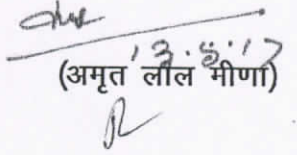 13.5.17
(अमृत लाल मीणा)